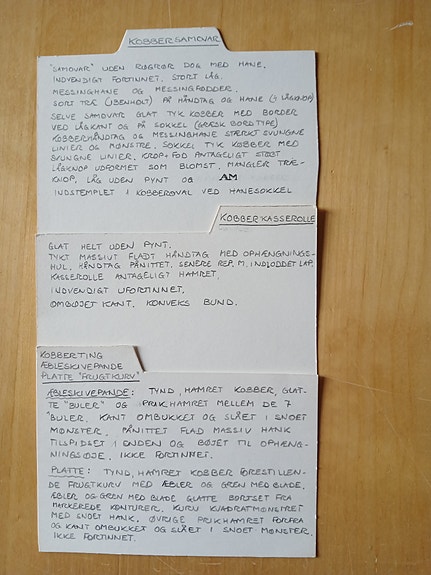 KOBBERSAMOVAR
"SAMOVAR" UDEN RØGRØR DOG MED HANE.
INDVENDIGT FORTINNET. STORT LÅG.
MESSINGHANE OG MESSINGFØDDER.
SORT TRÆ (IBENHOLT) PÅ HÅNDTAG OG HANE (+ LÅGKNOP)
SELVE SAMOVAR GLAT TYK KOBBER MED BORDER
VED LÅGKANT OG PÅ SOKKEL (GRÆSK BORD TYPE)
KOBBERHÅNDTAG OG MESSINGHANE STÆRKT SVUNGNE
LINIER OG MØNSTRE, SOKKEL TYK KOBBER MED
SVUNGNE LINIER. KROP + FOD ANTAGELIGT STØBT
LÅGKNOP UDFORMET SOM BLOMST. MANGLER TRÆ-
KNOP, LÅG UDEN PYNT OG AM
INDSTEMPLET I KOBBEROVAL VED HANESOKKEL
KOBBERKASSEROLLE
GLAT HELT UDEN PYNT.
TYKT MASSIVT FLADT HÅNDTAG MED OPHÆNGNINGS-
HUL. HÅNDTAG PÅNITTET. SENERE REP. M. INDLODDET LAP.
KASSEROLLE ANTAGELIGT HAMRET.
INDVENDIGT UFORTINNET.
OMBØJET KANT. KONVEKS BUND.
KOBBERTING
ÆBLESKIVEPANDE
PLATTE "FRUGTKURV"
ÆBLESKIVEPANDE: TYND, HAMRET KOBBER, GLAT-
TE "BULER" OG PRIKHAMRET MELLEM DE 7
BULER. KANT OMBUKKET OG SLÅET I SNOET
MØNSTER. PÅNITTET FLAD MASSIV HANK
TILSPIDSET I ENDEN OG BØJET TIL OPHÆNG-
NINGSØJE, IKKE FORTINNET.
PLATTE: TYND, HAMRET KOBBER FORESTILLEN-
DE FRUGTKURV MED ÆBLER OG GREN MED BLADE,
ÆBLER OG GREN MED BLADE GLATTE BORTSET FRA
MARKEREDE KONTURER. KURV KVADRATMØNSTRET
MED SNOET HANK, ØVRIGE PRIKHAMRET FORFRA
OG KANT OMBUKKET OG SLÅET I SNOET MØNSTER.
IKKE FORTINNET.